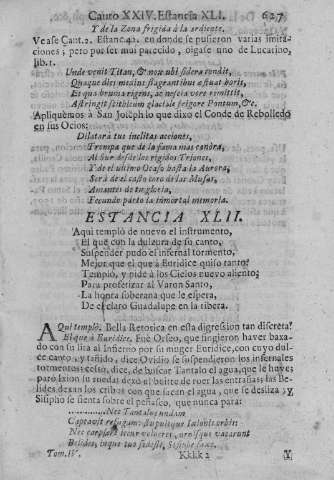 Canto XXIV. Estancia XLI. 627
Y de la Zona frigida à la ardiente.
Vease Cant. 2. Estanc. 42. en donde se pusieron varias imita-
ciones; pero por ser mui parecido, oigase uno de Lucarino,
lib. 1.
Unde venit Titan, & nox ubi sidera condit,
Quaque dies medius flagrantibus æstuat horis,
Et qua bruma rigens, ac nescia vere remitti,
Astringit scithicum glaciale frigore Pontum, &c.
Apliquemos à San Joseph lo que dixo el Conde de Rebolledo
en sus Ocios:
Dilatarà tus inclitas acciones,
Trompa que de la fama mas canóra,
Al Sur desde los rigidos Triones,
Y de el ultimo Ocaso hasta la Aurora;
Serà de el casto coro de las Musas,
Amantes de tu gloria,
Fecundo parto la inmortal memoria.
ESTANCIA XLII.
Aqui templò de nuevo el instrumento,
El que con la dulzura de su canto,
Suspender pudo el infernal tormento,
Mejor que el que à Euridice quiso tanto?
Templò, y pide à los Cielos nuevo aliento;
Para profetizar al Varon Santo,
La honra soberana que le espera,
De el claro Guadalupe en la ribera.
AQui templò. Bella Retorica en esta digression tan discreta!
El que à Euridice. Fuè Orfeo, que fingieron haver baxa-
do con su lira al Infierno por su muger Euridice, con cuyo dul-
ce canto, y tañido, dice Ovidio se suspendieron los infernales
tormentos: cessò, dice, de buscar Tantalo el agua, que le huye;
parò Ixion su rueda: dexò el buitre de roer las entrañas: las Be-
lides dexan los cribos con que sacan el agua, que se desliza; y
Sisipho se sienta sobre el peñasco, que nunca para:
Nec Tantalus undam
Captavit refugam: stupuitque Ixionis orbis:
Nec carpsere iecur volucres, urnisque vacarunt
Belides, inque tuo sedisti, Sisiphe saxo.
Tom. IV. Kkkk 2 Y